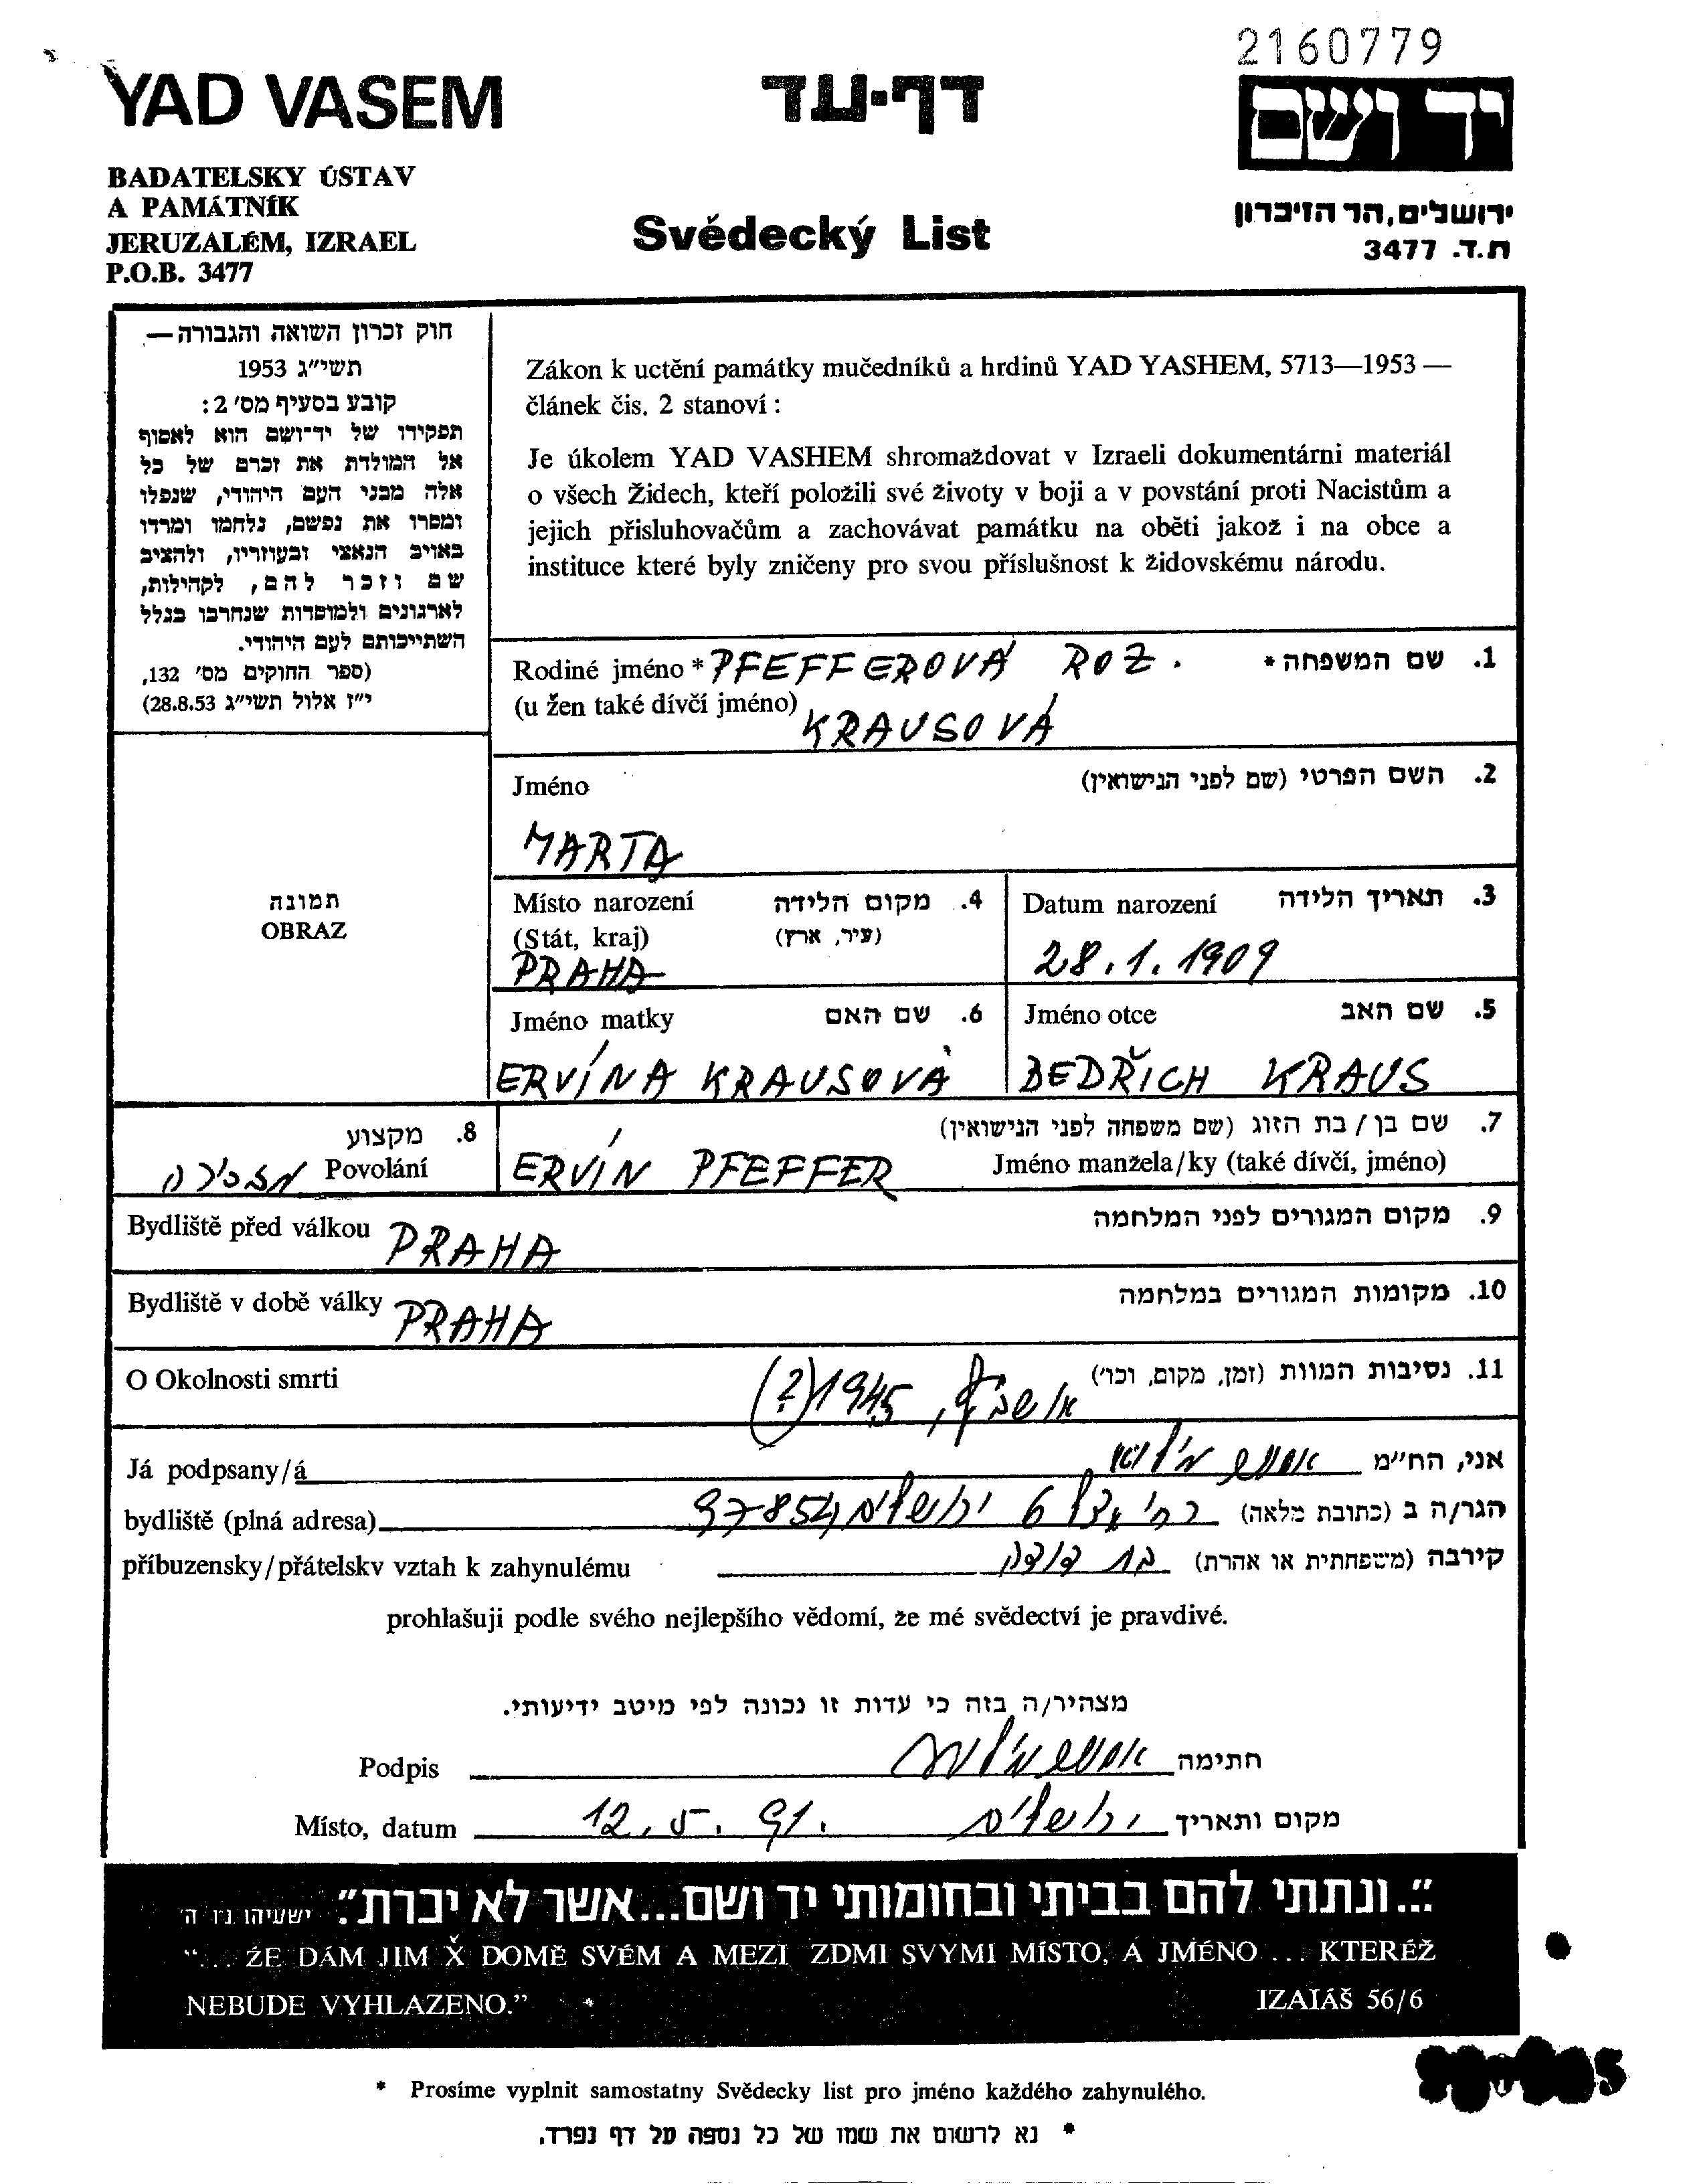 2160779
YAD VASEM
דף-עד
יד ושם
BADATELSKY ÚSTAV
A PAMÁTNÍK
JERUZALÉM, IZRAEL
P.O.B. 3477
Svědecký List
ירושלים, הר הזיכרון
ת.ד. 3477
חוק זכרון השואה והגבורה —
תשי"ג 1953
קובע בסעיף מס' 2:
תפקידו של יד־ושם הוא לאסוף
אל המולדת את זכרם של כל
אלה מבני העם היהודי, שנפלו
ומסרו את נפשם, נלחמו ומרדו
באויב הנאצי ובעוזריו, ולהציב
שם וזכר להם, לקהילות,
לארגונים ולמוסדות שנחרבו בגלל
השתייכותם לעם היהודי.
(ספר החוקים מס' 132,
י"ז אלול תשי"ג 28.8.53)
Zákon k uctění památky mučedníků a hrdinů YAD YASHEM, 5713—1953 —
článek čis. 2 stanoví :
Je úkolem YAD VASHEM shromažďovat v Izraeli dokumentárni materiál
o všech Židech, kteří položili své životy v boji a v povstání proti Nacistům a
jejich přisluhovačům a zachovávat památku na oběti jakož i na obce a
instituce které byly zničeny pro svou příslušnost k židovskému národu.
Rodiné jméno * PFEFFEROVÁ ROZ. שם המשפחה * .1
(u žen také dívčí jméno) KRAUSOVÁ
Jméno השם הפרטי (שם לפני הנישואין) .2
MARTA
תמונה
OBRAZ
Místo narození מקום הלידה .4
(Stát, kraj) (עיר, ארץ)
PRAHA
Datum narození תאריך הלידה .3
28.1.1909
Jméno matky שם האם .6
ERVÍNA KRAUSOVÁ
Jméno otce שם האב .5
BEDŘICH KRAUS
מקצוע .8
Povolání מזכירה
שם בן / בת הזוג (שם משפחה לפני הנישואין) .7
ERVÍN PFEFFER Jméno manžela/ky (také dívčí, jméno)
Bydliště před válkou PRAHA מקום המגורים לפני המלחמה .9
Bydliště v době války PRAHA מקומות המגורים במלחמה .10
O Okolnosti smrti נסיבות המוות (זמן, מקום, וכו') .11
אושביץ, 1945(?)
Já podpsany/á אני, הח"מ
bydliště (plná adresa) הגר/ה ב (כתובת מלאה) רח' 6 ירושלים 97854
príbuzensky/přátelskv vztah k zahynulému קירבה (משפחתית או אהרת) בת דודה
prohlašuji podle svého nejlepšího vědomí, že mé svědectví je pravdivé.
מצהיר/ה בזה כי עדות זו נכונה לפי מיטב ידיעותי.
Podpis חתימה
Místo, datum מקום ותאריך ירושלים 12.5.91.
"...ונתתי להם בביתי ובחומותי יד ושם...אשר לא יכרת". ישעיהו נ"ו ה'
“... ŽE DÁM JIM X̌ DOMĚ SVÉM A MEZI ZDMI SVYMI MÍSTO, A JMÉNO ... KTERÉŽ
NEBUDE VYHLAZENO.” IZAIÁŠ 56/6
* Prosíme vyplnit samostatny Svědecky list pro jméno každého zahynulého.
* נא לרשום את שמו של כל נספה על דף נפרד.